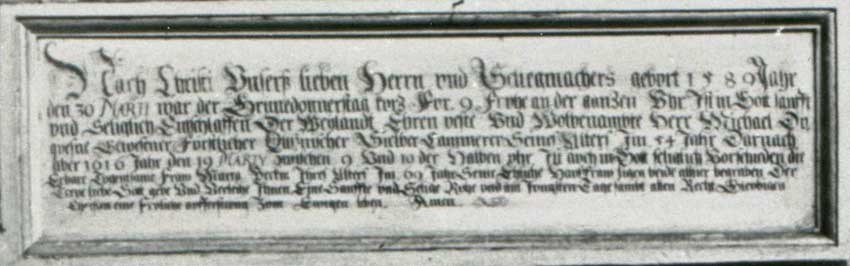 Nach Christi Unsers lieben Herrn und Seligmachers geburt 1589 Jahr
den 30 MARTI war der Grunedonnerstag kurz vor 9 Frühe an der ganzen Uhr Ist in Gott sanfft
und Seliglich Entschlaffen Der Weylandt Ehren veste Und Wolbenambte Herr Michael
gewesener Fürstlicher Cammerer Seines Alters Im 54 Jahr Darnach
uber 1616 Jahr den 19 MARTY zwischen 9 Und 10 der Halben uhr Ist auch in Gott seliglich Vorschieden die
Erbare Tugentsame Fraw Maria Ihres Alters Im 69 Jahr Seine Eheliche Hausfraw ligen beide alhier begraben Der
liebe Gott gebe Und Verleihe Ihnen Eine Sanffte und Selige Ruhe und am Jungsten Tage sambt allen
Christen eine Froliche aufferstehung zum Ewigen leben. Amen